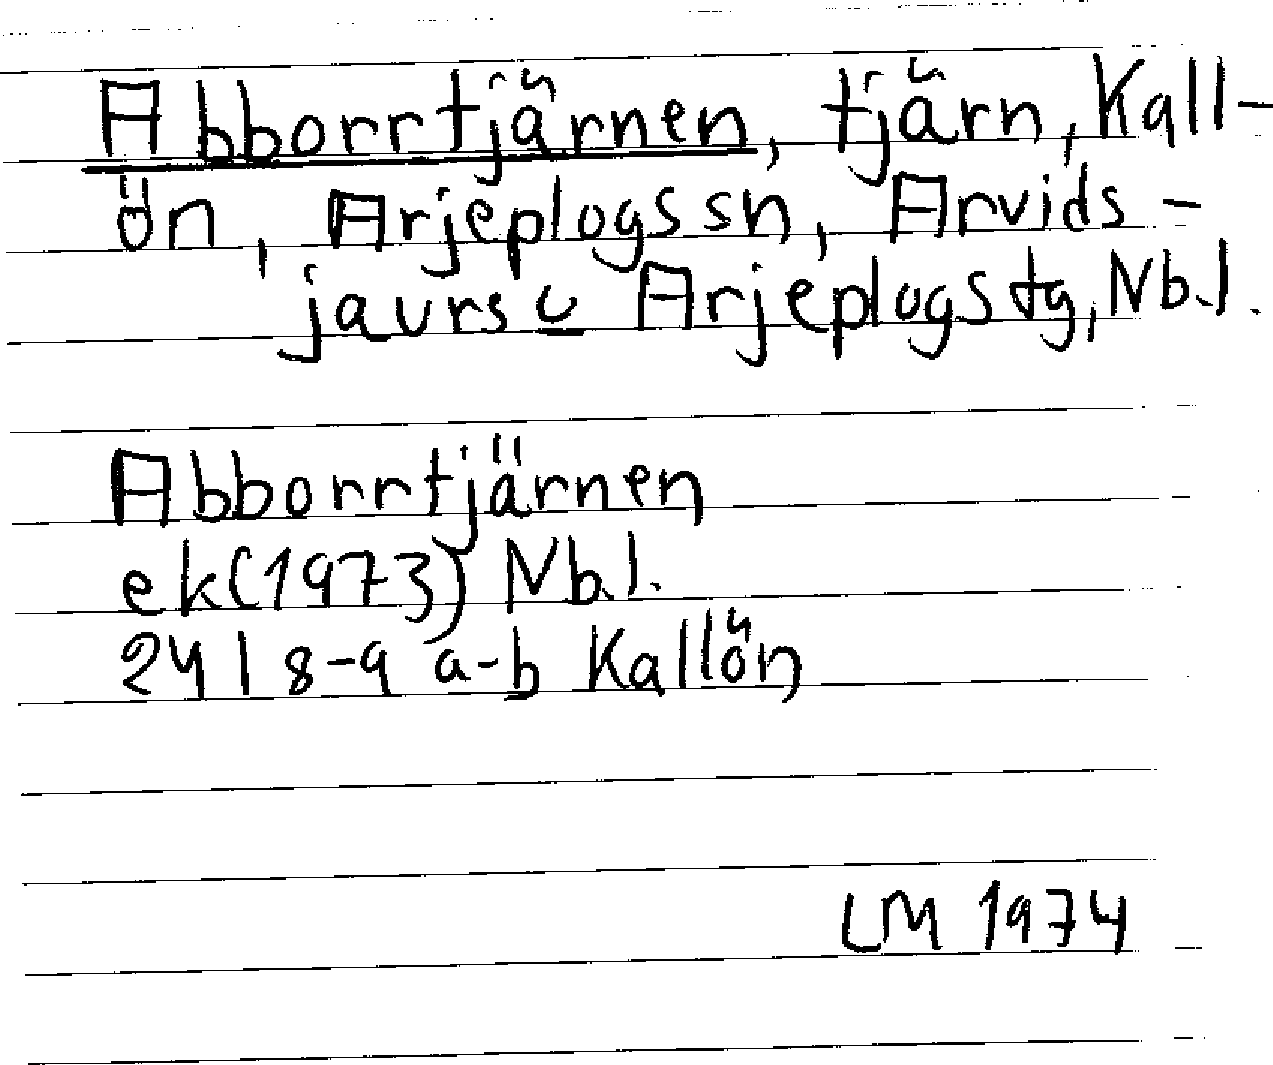 Abborrtjärnen, tjärn, Kall-
ön, Arjeplogs sn, Arvids-
jaurs o Arjeplogs tg, Nb.l.
Abborrtjärnen
ek(1973) Nb.l.
24I 8-9 a-b Kallön
LM 1974